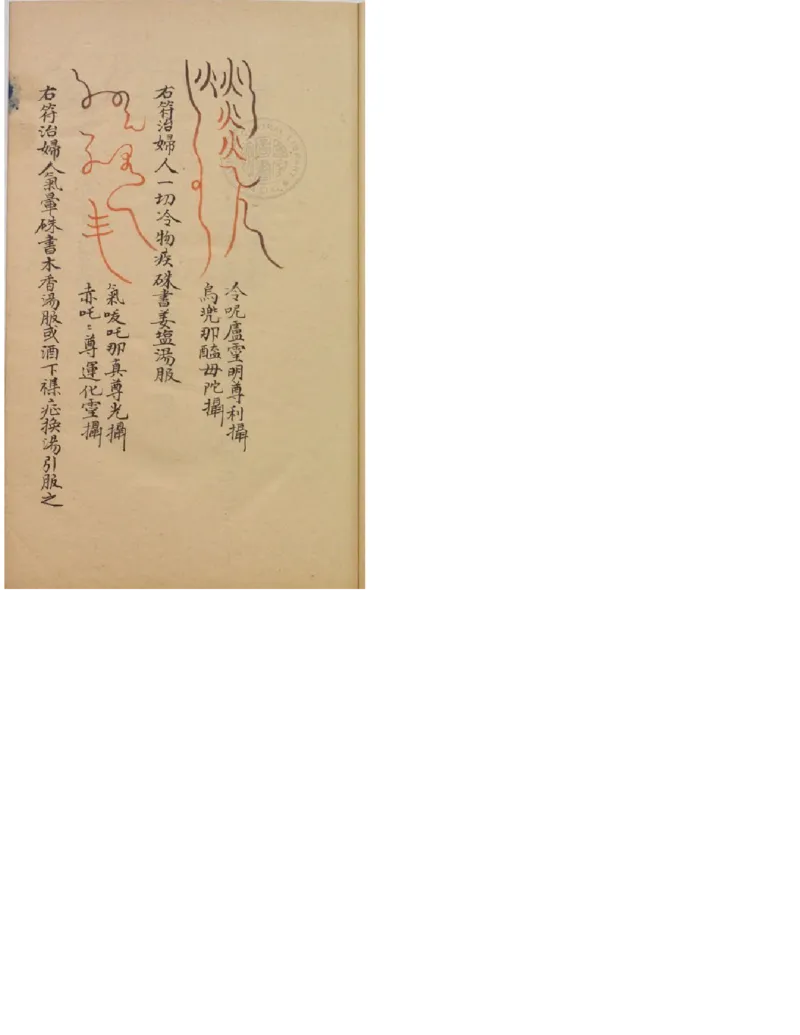 冷呢盧霊明尊利攝
烏兠那醯母陀攝
右符治婦人一切冷物疾硃書姜塩湯服
氣唆吒那真尊光攝
赤吒〻尊運化霊攝
右符治婦人氣暈硃書木香湯服或酒下襍症換湯引服之